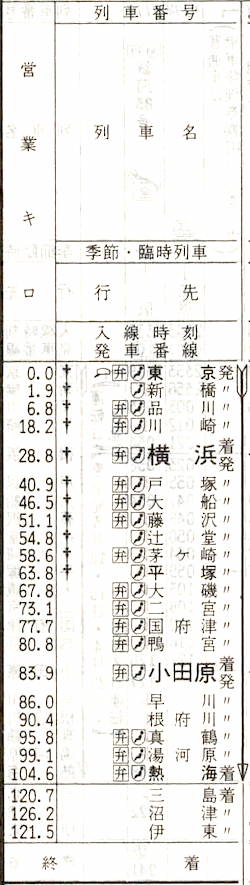 列車番号
営業キロ
列車名
季節・臨時列車
行先
入線時刻
発車番線
0.0 弁 東京発
1.9 弁 新橋〃
6.8 弁 品川〃
18.2 弁 川崎〃
28.8 弁 横浜着発
40.9 弁 戸塚〃
46.5 弁 大船〃
51.1 弁 藤沢〃
54.8 辻堂〃
58.6 弁 茅ケ崎〃
63.8 平塚〃
67.8 弁 大磯〃
73.1 弁 二宮〃
77.7 弁 国府津〃
80.8 弁 鴨宮〃
83.9 弁 小田原着発
86.0 早川〃
90.4 根府川〃
95.8 弁 真鶴〃
99.1 弁 湯河原〃
104.6 弁 熱海着
120.7 三島着
126.2 沼津〃
121.5 伊東〃
終着